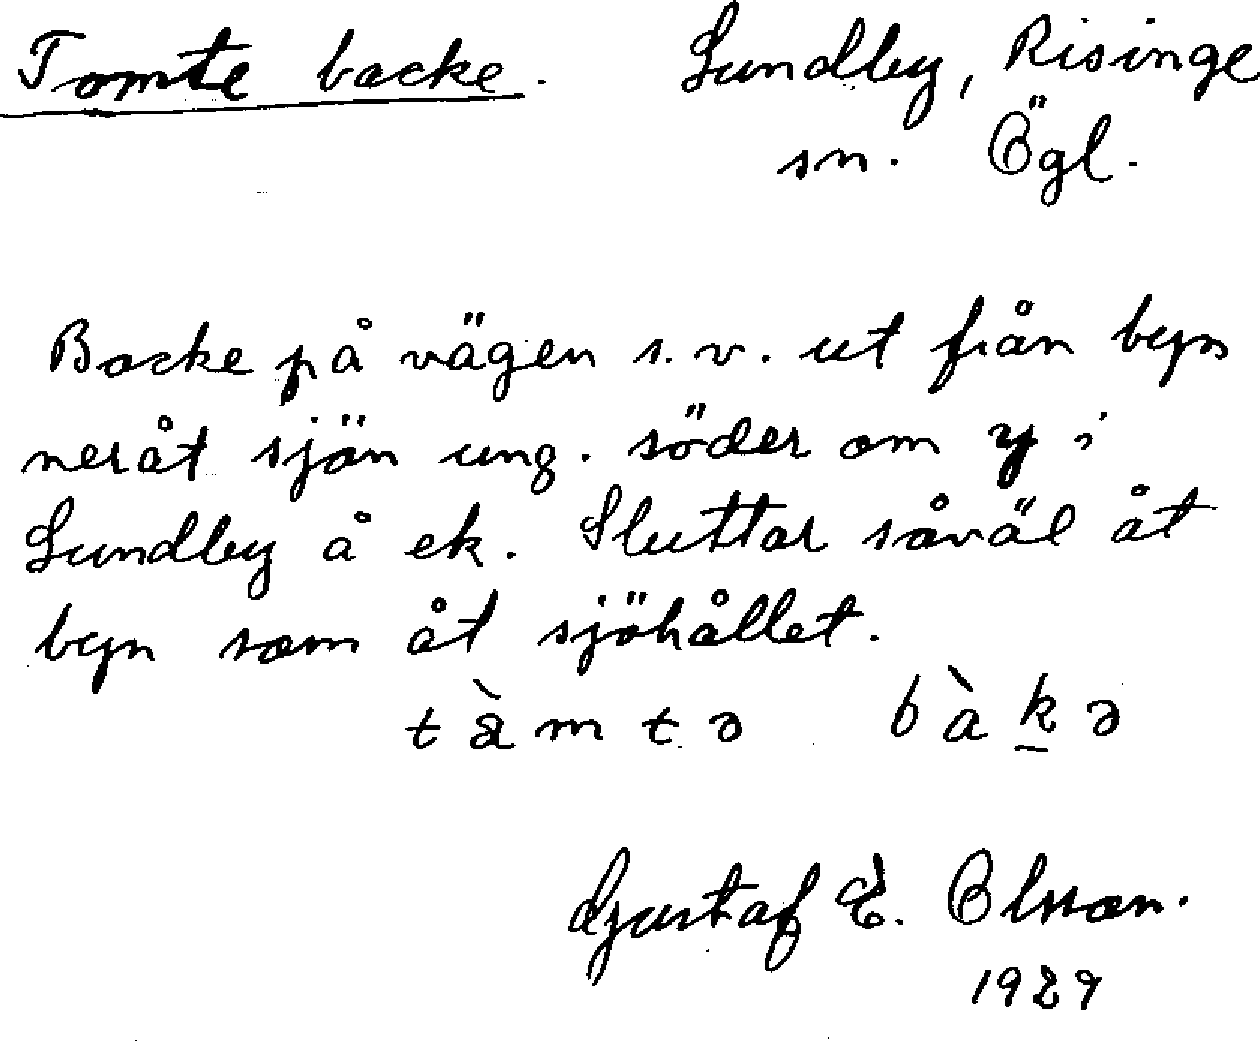 Tomte backe. Lundby, Risinge
sn. Ögl.
Backe på vägen s.v. ut från byn
neråt sjön ung. söder om y i
Lundby å ek. Sluttar såväl åt
byn som åt sjöhållet.
tàmtə bàkə
Gustaf E. Olsson.
1929